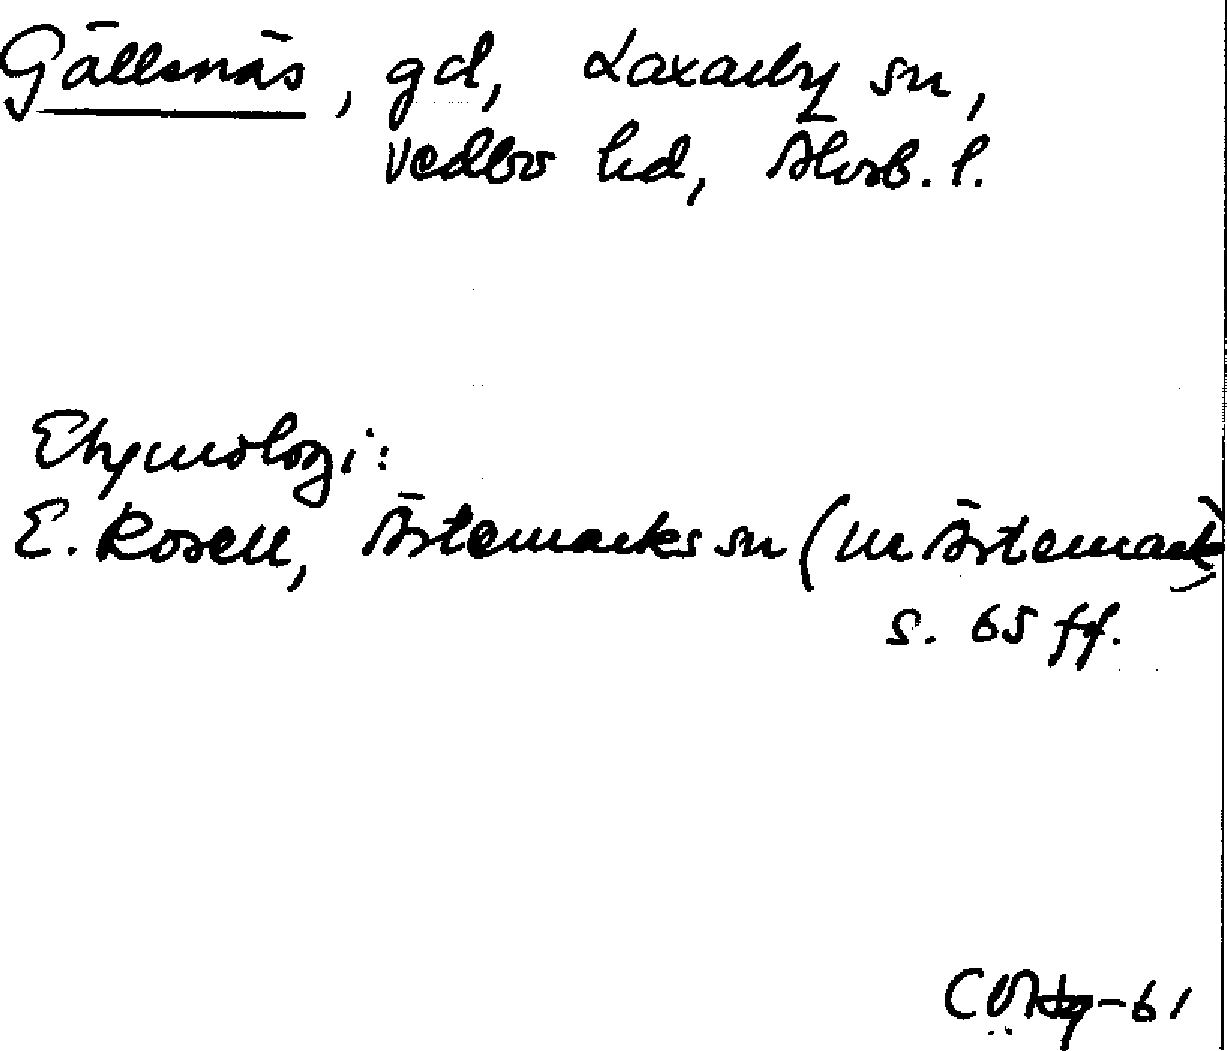 Gällsnäs, gd, Laxarby sn,
Vedbo hd, Älvsb. l.
Etymologi:
E. Rosell, Ärtemarks sn (ur Ärtemark)
s. 65 ff.
-61